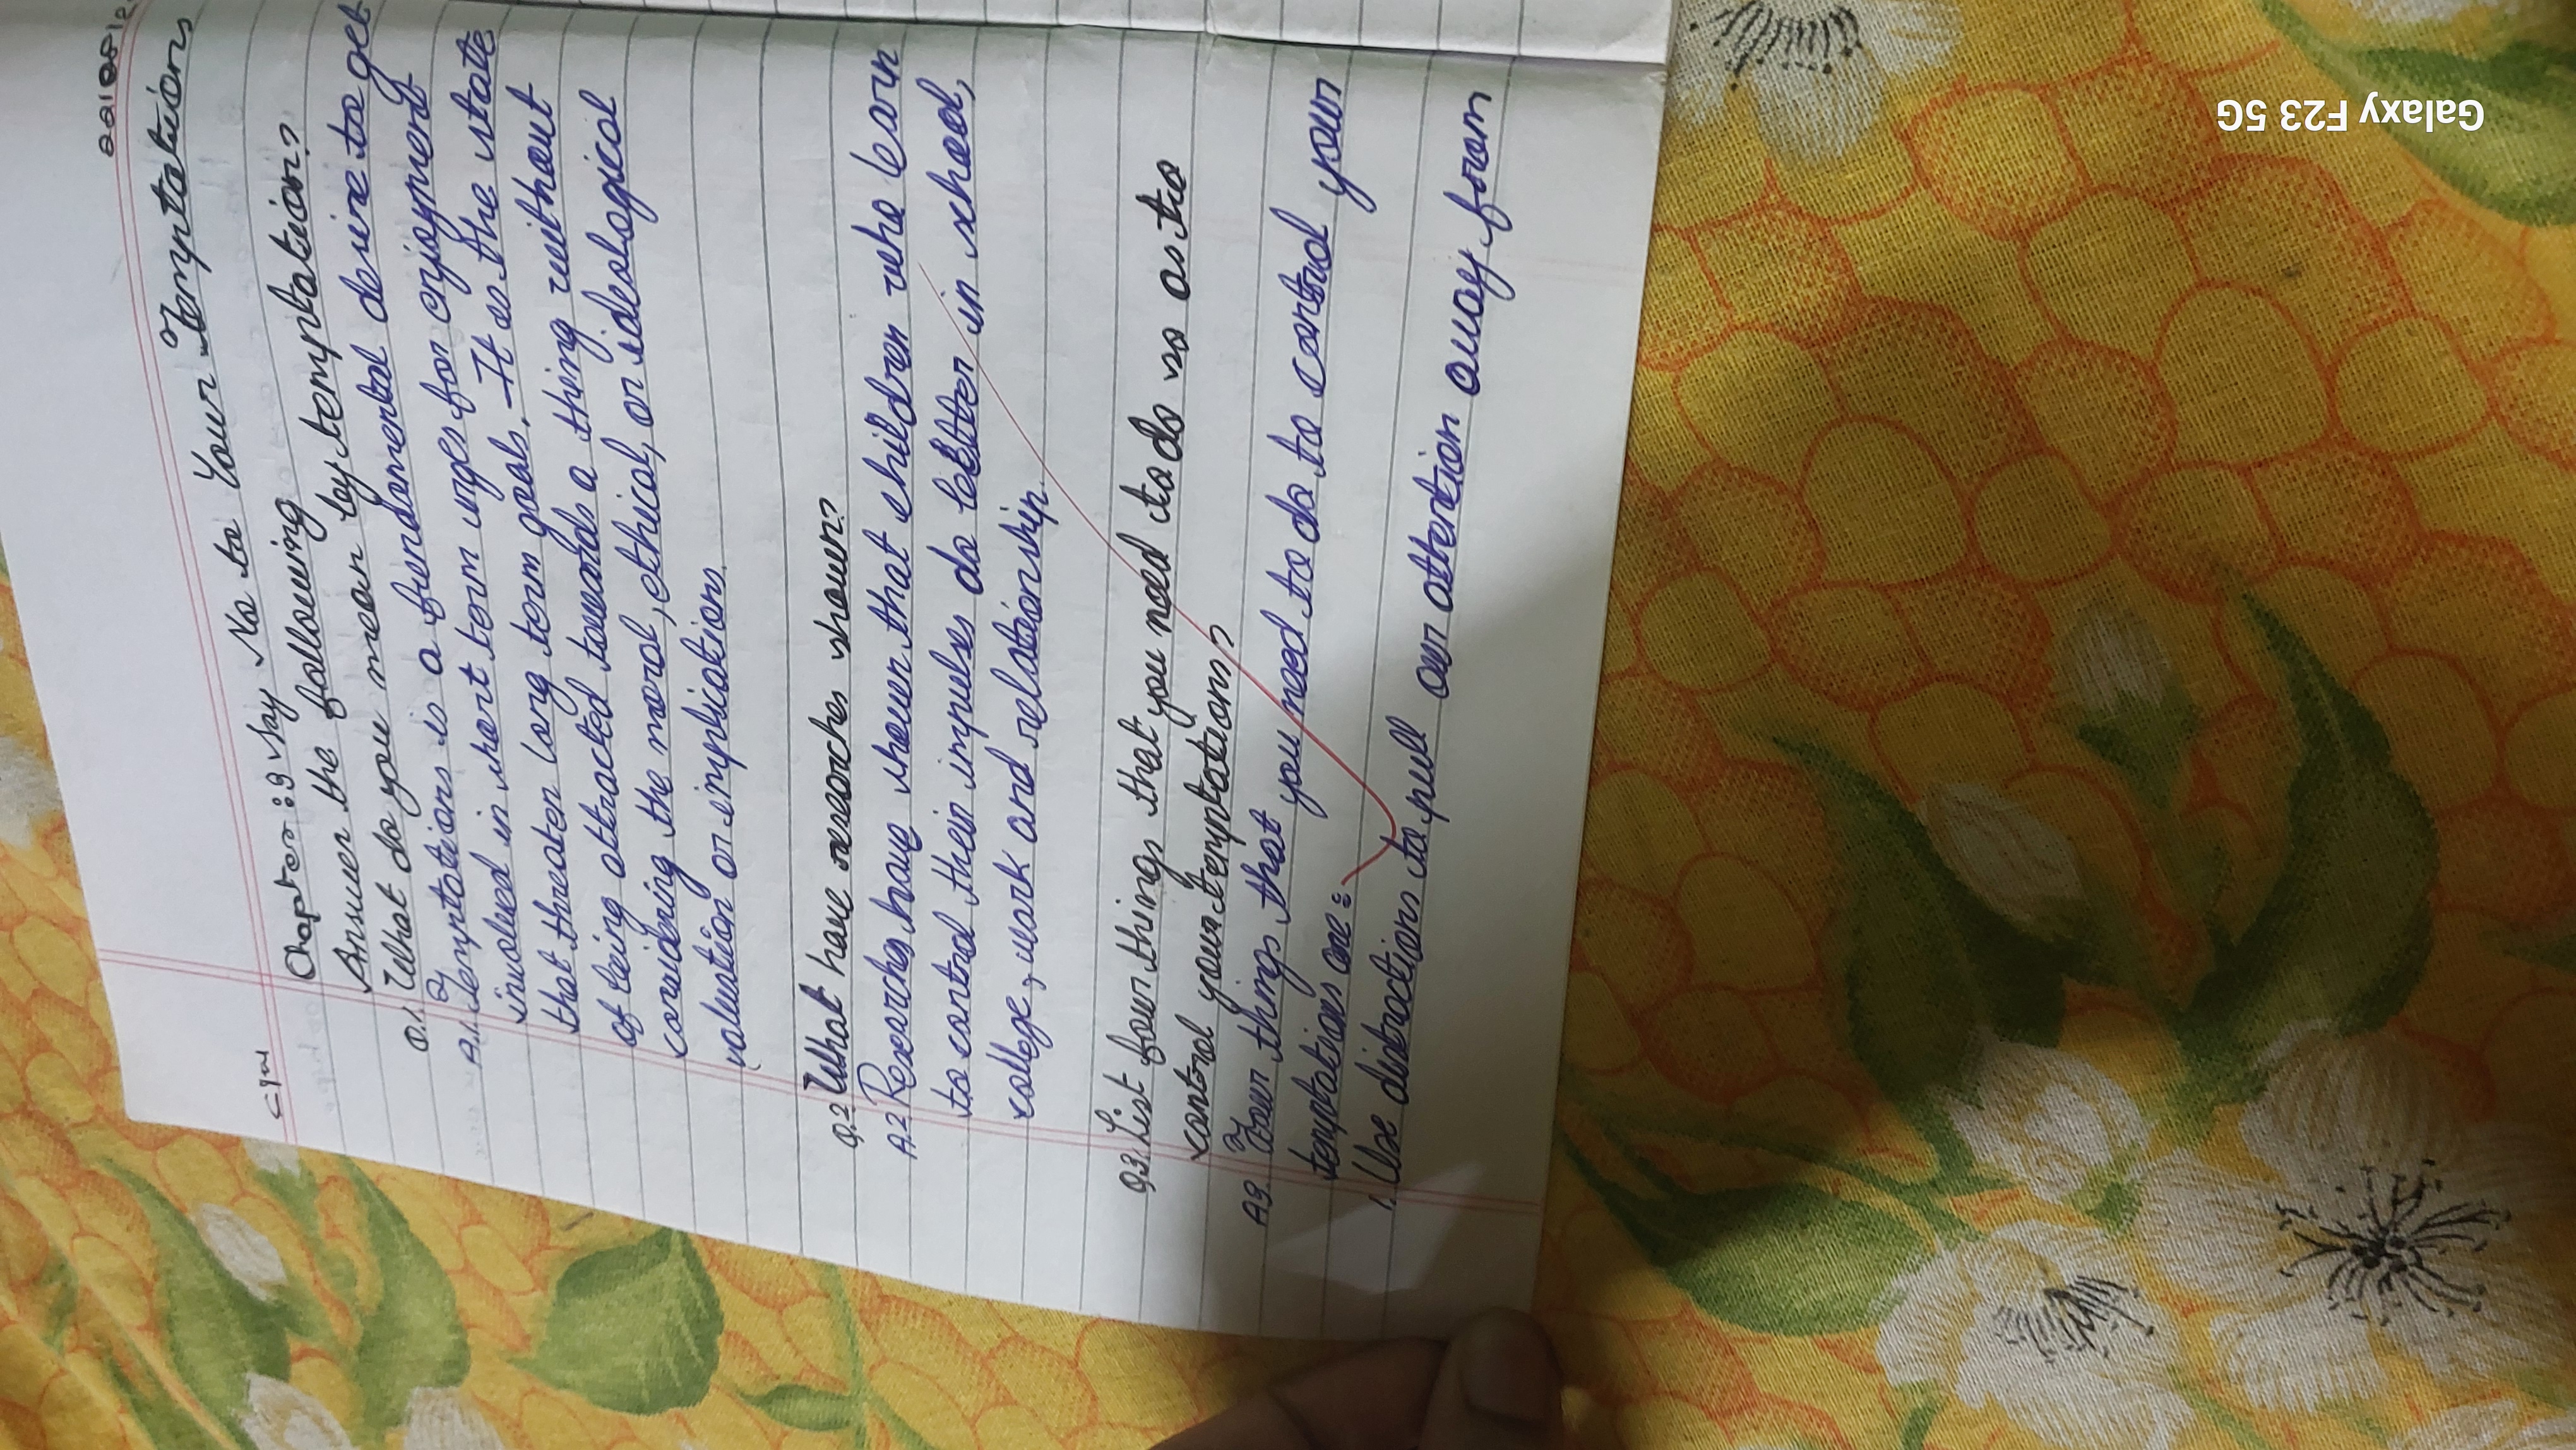 C.W
Chapter:3 Say No to Your Temptations
Answer the following
Q.1. What do you mean by temptation?
A.1. Temptations is a fundamental desire to get
involved in short term urges for enjoyment
that threaten long term goals. It is the state
of being attracted towards a thing without
considering the moral, ethical, or ideological
valuation or implications
Q.2 What have researches shown?
A.2 Researches have shown that children who learn
to control their impulses do better in school,
college, work and relationship.
Q3. List four things that you need to do so as to
control your temptations?
A3. Four things that you need to do to control your
temptations are:
1. Use distractions to pull our attention away from
Galaxy F23 5G